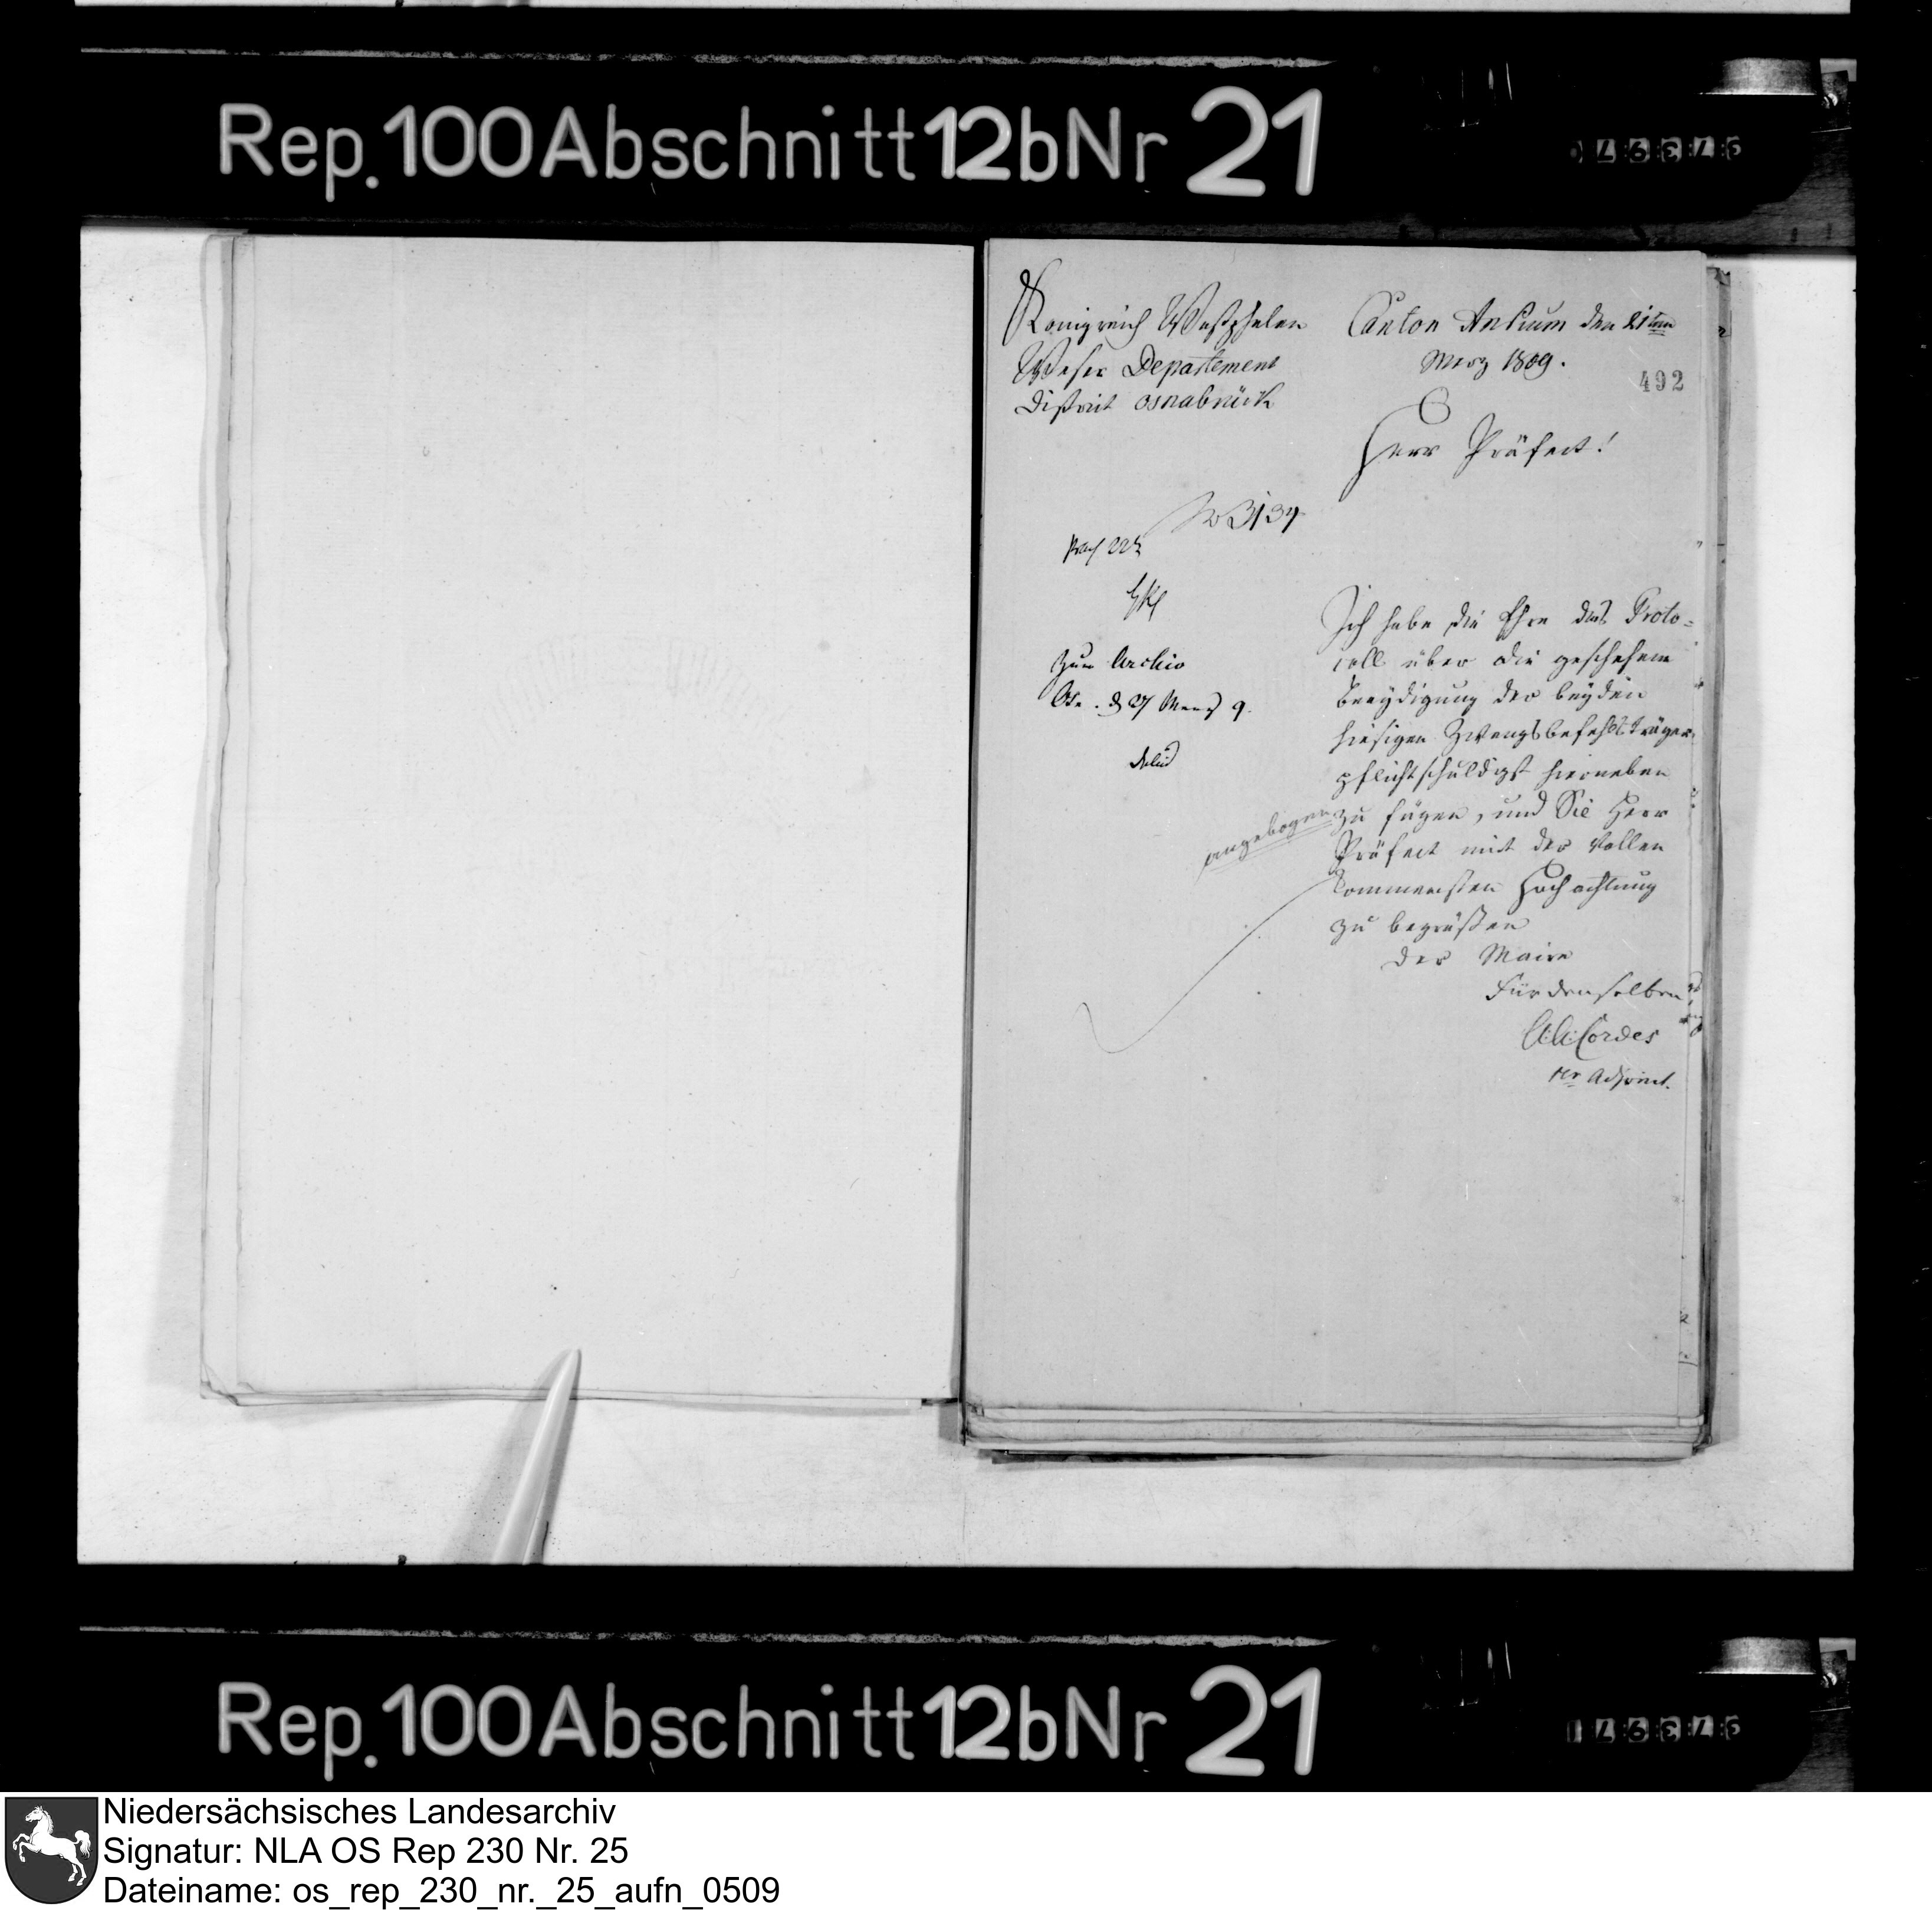 Rep. 100 Abschnitt 12b Nr 21
Königreich Westphalen
Weser Departement
District Osnabrück
Canton Ankum den 21ten
Merz 1809.
492
Herr Präfect!
No 3134
zum Archiv
Os. d 27 Merz 9.
Ich habe die Ehre das Proto=
coll über die geschehene
Beeydigung der beyden
hiesigen Zwangsbefehlsträger
pflichtschuldigst hierneben
angebogen
zu fügen, und Sie Herr
Präfect mit der vollen
kommensten Hochachtung
zu begrüßen
Der Maire
Für denselben
Cordes
1er Adjoinct.
Rep. 100 Abschnitt 12b Nr 21
Niedersächsisches Landesarchiv
Signatur: NLA OS Rep 230 Nr. 25
Dateiname: os_rep_230_nr._25_aufn_0509